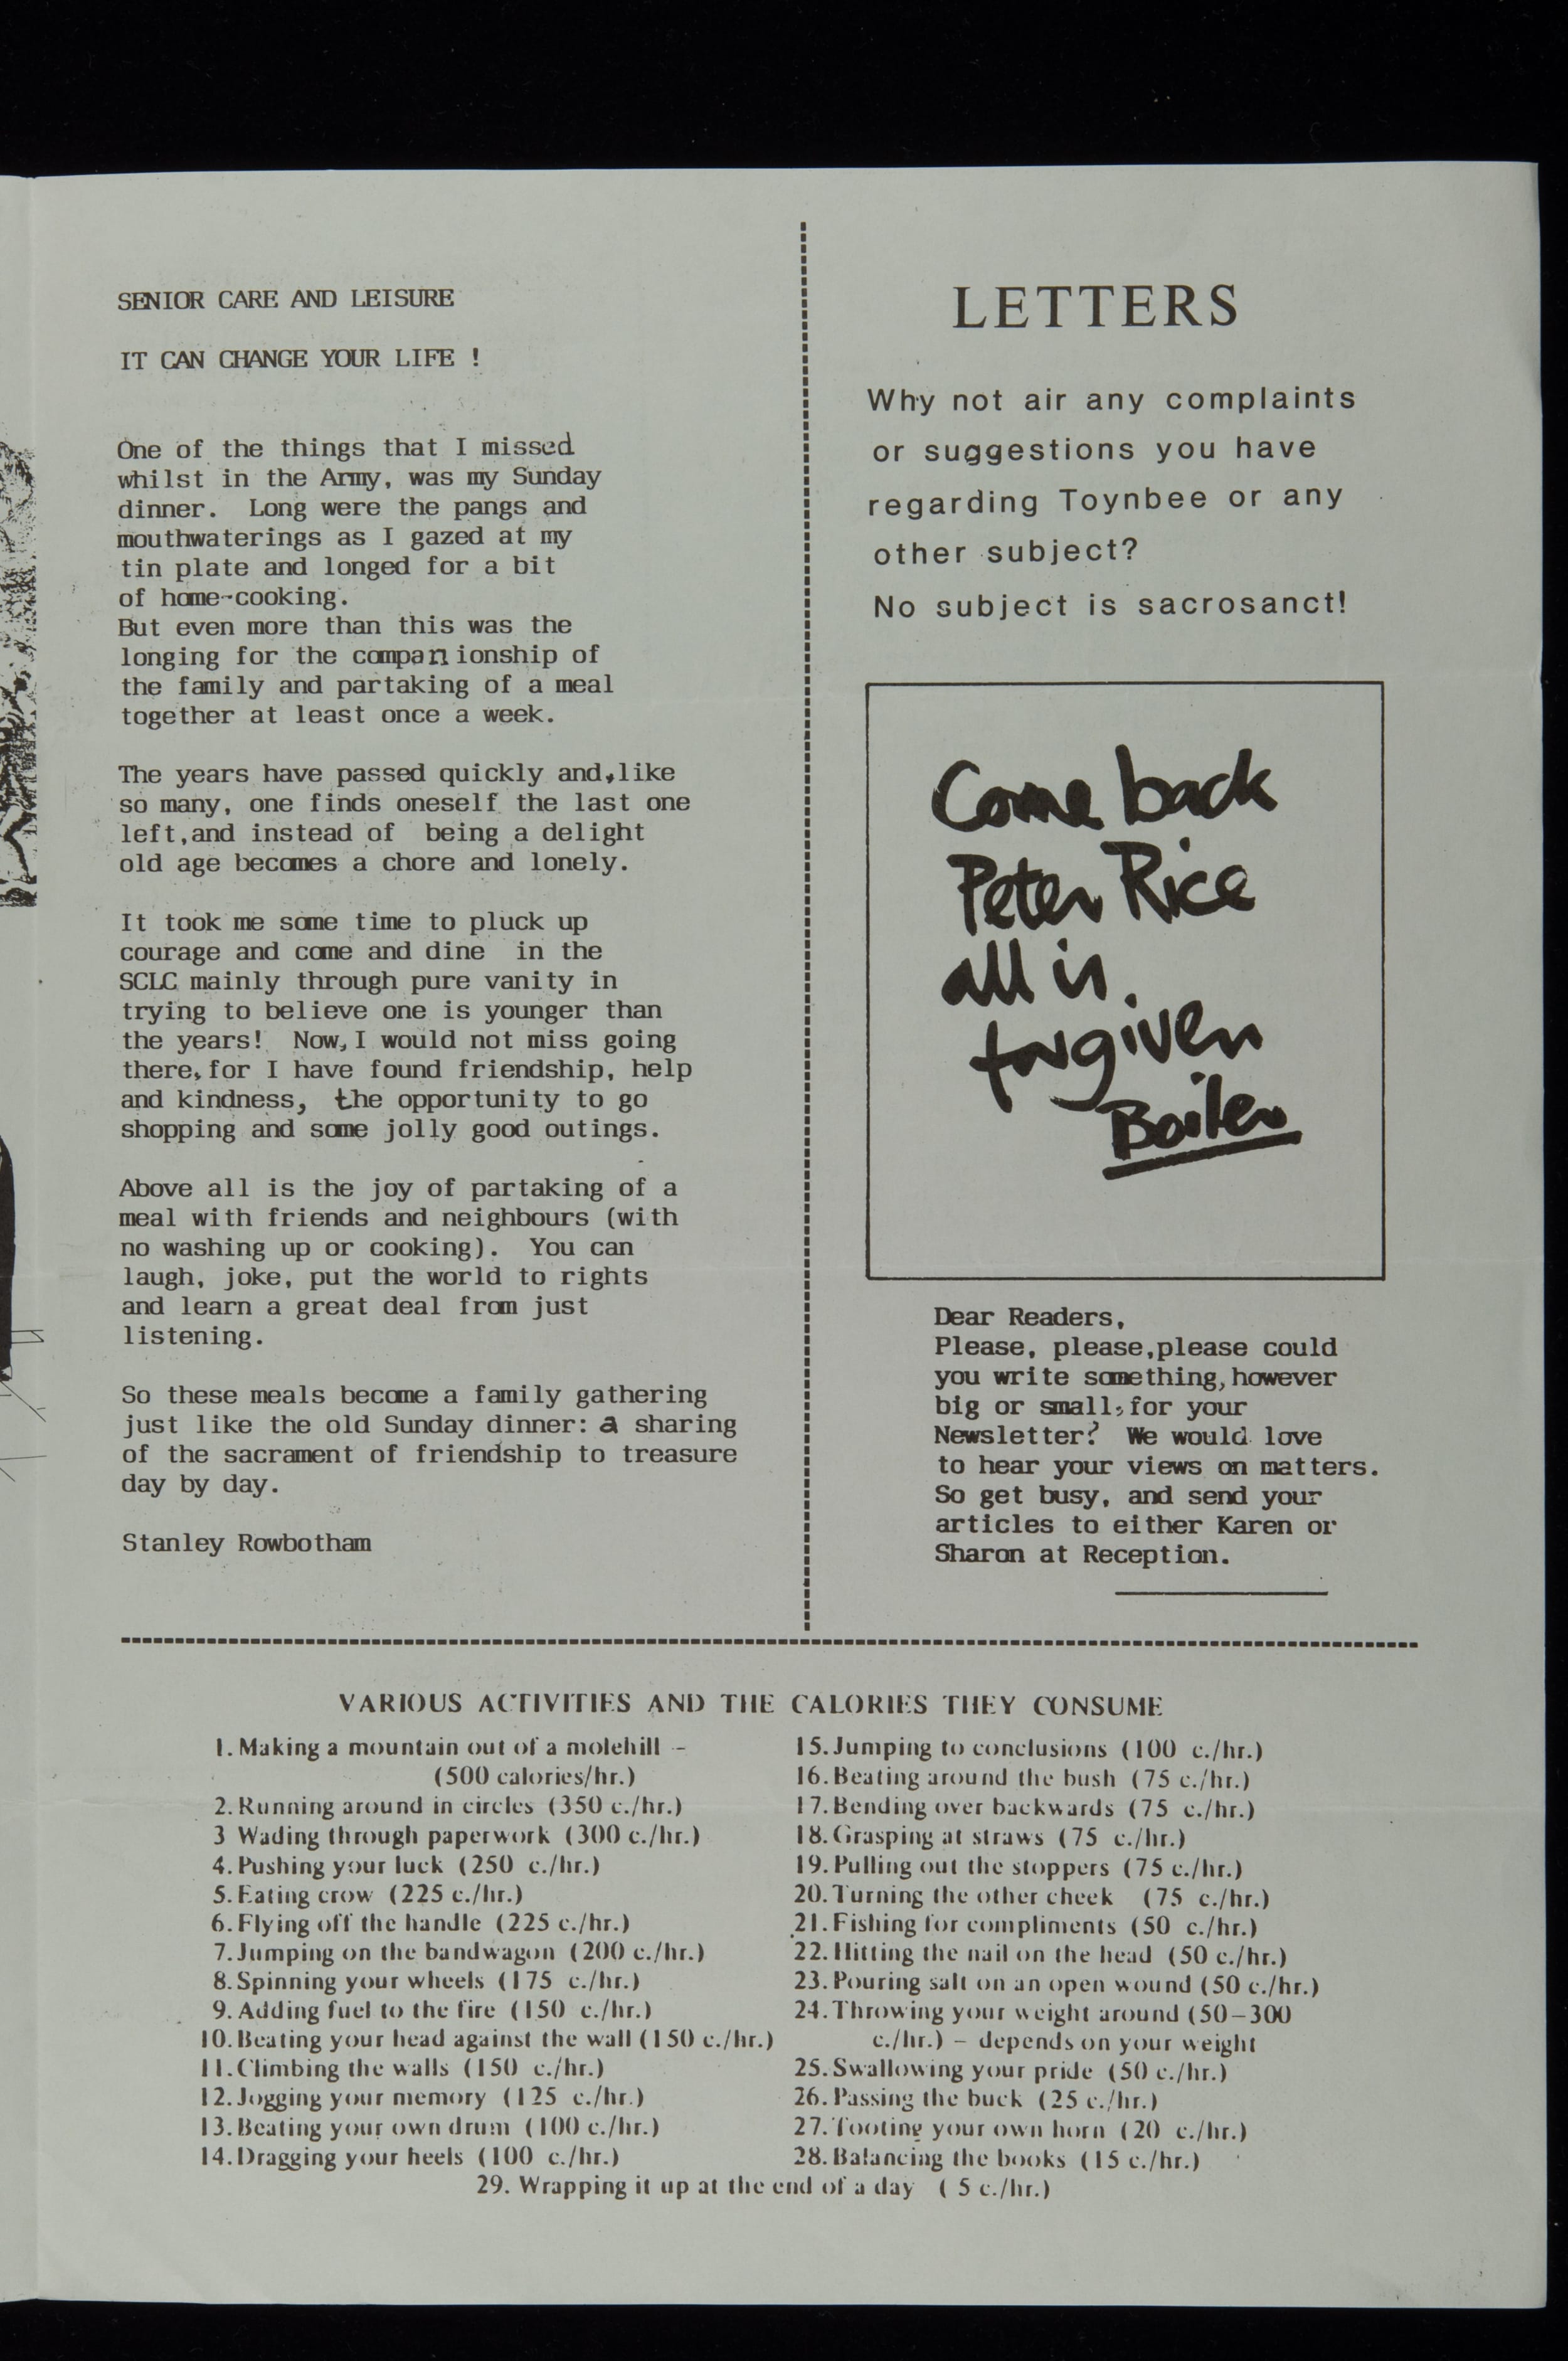 SENIOR CARE AND LEISURE
IT CAN CHANGE YOUR LIFE !
One of the things that I missed
whilst in the Army, was my Sunday
dinner. Long were the pangs and
mouthwaterings as I gazed at my
tin plate and longed for a bit
of home-cooking.
But even more than this was the
longing for the companionship of
the family and partaking of a meal
together at least once a week.
The years have passed quickly and,like
so many, one finds oneself the last one
left,and instead of being a delight
old age becomes a chore and lonely.
It took me some time to pluck up
courage and come and dine in the
SCLC mainly through pure vanity in
trying to believe one is younger than
the years! Now, I would not miss going
there, for I have found friendship, help
and kindness, the opportunity to go
shopping and some jolly good outings.
Above all is the joy of partaking of a
meal with friends and neighbours (with
no washing up or cooking). You can
laugh, joke, put the world to rights
and learn a great deal from just
listening.
So these meals become a family gathering
just like the old Sunday dinner: a sharing
of the sacrament of friendship to treasure
day by day.
Stanley Rowbotham
LETTERS
Why not air any complaints
or suggestions you have
regarding Toynbee or any
other subject?
No subject is sacrosanct!
Come back
Peter Rice
all is
forgiven
Boiler
Dear Readers,
Please, please,please could
you write something, however
big or small, for your
Newsletter? We would love
to hear your views on matters.
So get busy, and send your
articles to either Karen or
Sharon at Reception.
VARIOUS ACTIVITIES AND THE CALORIES THEY CONSUME
1. Making a mountain out of a molehill –
(500 calories/hr.)
2. Running around in circles (350 c./hr.)
3 Wading through paperwork (300 c./hr.)
4. Pushing your luck (250 c./hr.)
5. Eating crow (225 c./hr.)
6. Flying off the handle (225 c./hr.)
7. Jumping on the bandwagon (200 c./hr.)
8. Spinning your wheels (175 c./hr.)
9. Adding fuel to the fire (150 c./hr.)
10. Beating your head against the wall (150 c./hr.)
11. Climbing the walls (150 c./hr.)
12. Jogging your memory (125 c./hr.)
13. Beating your own drum (100 c./hr.)
14. Dragging your heels (100 c./hr.)
15. Jumping to conclusions (100 c./hr.)
16. Beating around the bush (75 c./hr.)
17. Bending over backwards (75 c./hr.)
18. Grasping at straws (75 c./hr.)
19. Pulling out the stoppers (75 c./hr.)
20. Turning the other cheek (75 c./hr.)
21. Fishing for compliments (50 c./hr.)
22. Hitting the nail on the head (50 c./hr.)
23. Pouring salt on an open wound (50 c./hr.)
24. Throwing your weight around (50–300
c./hr.) – depends on your weight
25. Swallowing your pride (50 c./hr.)
26. Passing the buck (25 c./hr.)
27. Tooting your own horn (20 c./hr.)
28. Balancing the books (15 c./hr.)
29. Wrapping it up at the end of a day ( 5 c./hr.)